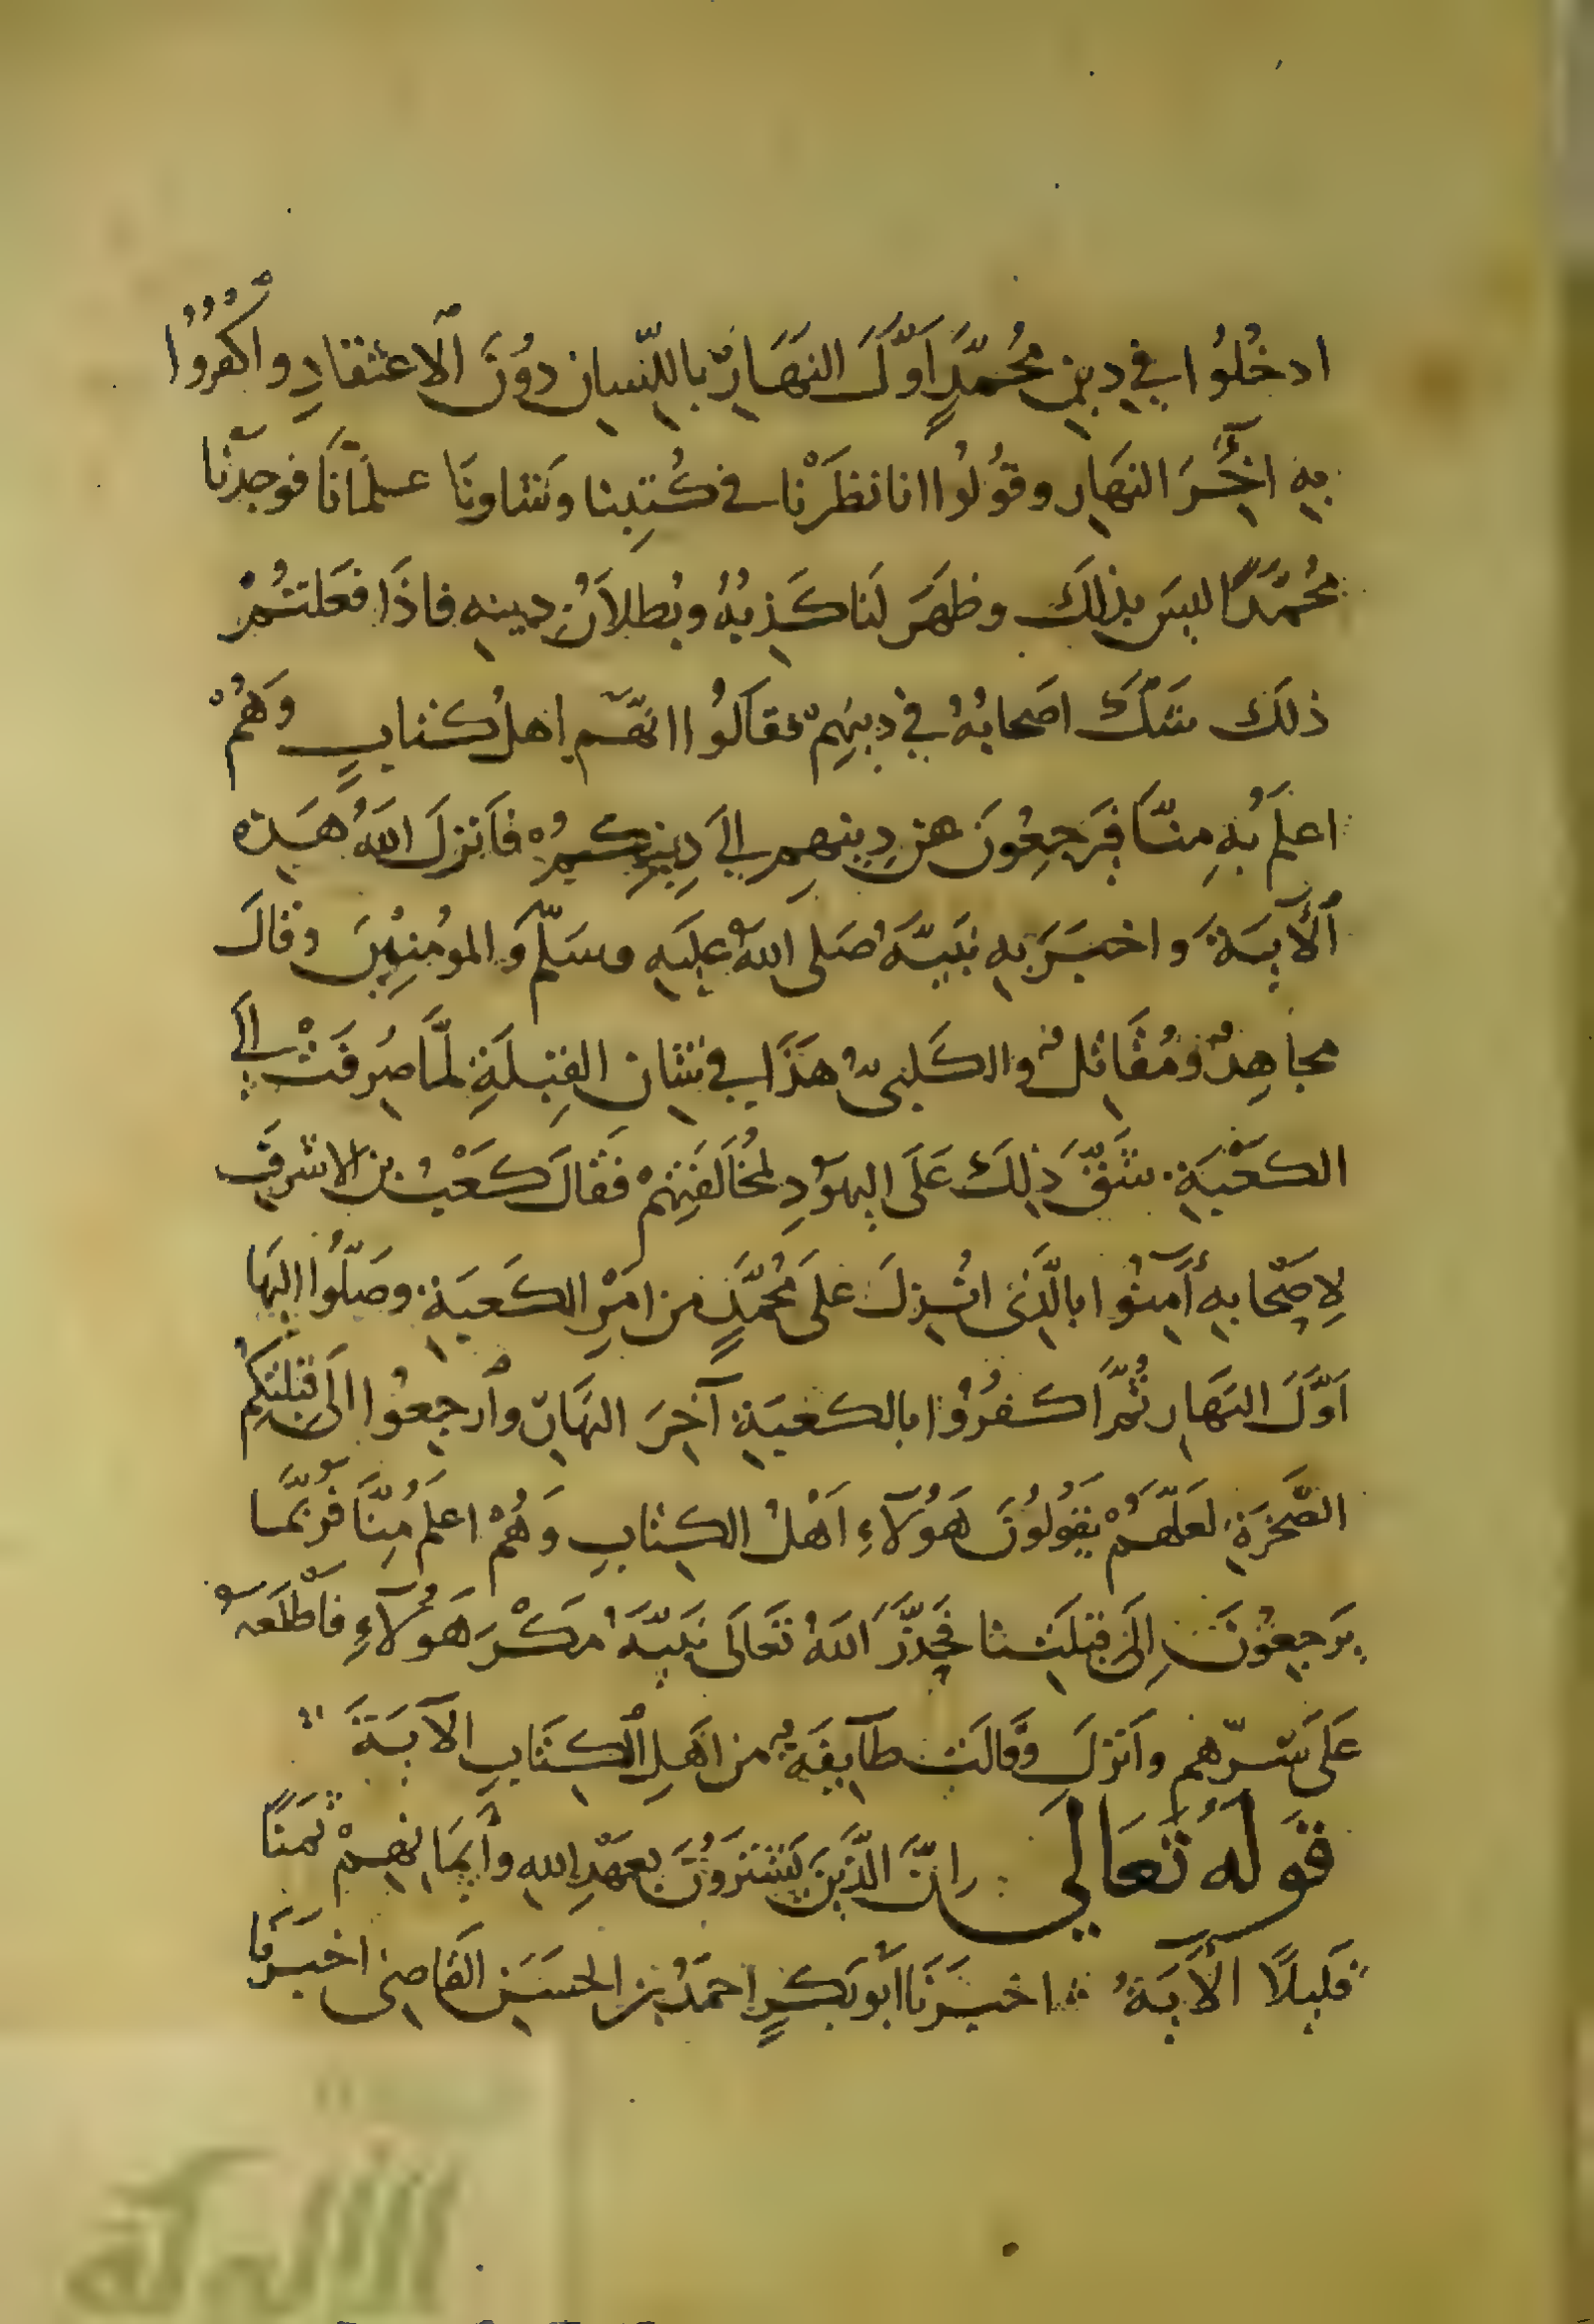 ادخُلُوا في دِينِ مُحُمَّدٍ اَوَّلَ النَهَارِ باللِّسِانِ دوُنَ الاعتقادِ واكفُروُا
بِهِ اخِرَ النهَارِ وقوُلُوا انا نظَرْنا في كُتِبنا وشاورنَا علمَانَا فوجدنَا
مُحُمَّدًا ليسَ بذلِكَ وظهَرَ لَنا كَذِبُهُ وبُطلانُ دِينِهِ فاذَا فعَلتُمْ
ذلكَ شَكَّ اصَحابُهُ في دِينِهِمْ فقالَوُا انهَّم اهلُ كتابٍ وَهُمْ
اعلَمُ بهِ مِنَّا فيَرجِعُونَ عن دِينهِم إلىَ دِينِكُمْ فاَنزلَ اللهُ هَذِهِ
الآيةَ واخبَرَ بهِ نَبيَّهُ صَلى اللهُ عليَهِ وسَلَّم وَالموُمنِيْنَ وقالَ
مجاهِدٌ ومُقَاتلٌ والكَلبىُّ هَذَا في شَانِ القِبلَةِ لمَّا صُرِفَتْ إلىَ
الكعَبْةِ شَقَّ ذِلكَ عَلَى اليهوُدِ لمُخَالَفَتِهِمْ فَقالَ كَعَبُْ بن الاشرفِ
لاِصَحْابهِ آمِنوُا بالَّذىِ انُزِلَ علىَ مُحُمَّدٍ من امَرِْ الكَعبَةِ وصَلّوُا اليهَا
اَوَّلَ النهَارِ ثُمَّ اكفُرُوا بالكعبَةِ آخِرَ النهَارِ وارجِعوُا الَى قبلتِكُم
الصَّخرَةِ لعَلَّهُمْ يقَوُلوُنَ هَؤُلآءِ اَهْلُ الكِتابِ وَهُمْ اعلَمُ مِنَّا فرُبَّما
يَرجِعوُنَ إلىَ قبلَتنا فحَذَّرَ اللهُ تعَالَى نبَيَّهُ مَكْرَ هَوُلآءِ فاَطْلَعَهُ
عَلىَ سّرهِم واَنزلَ وَقالَت طآيفَةٌ من اهَلِ الكِتَابِ الآيَةَ
قوَلهُ تَعَالي إنَّ الَّذيَن يَشترَوُنَ بعَهْدِ اللهِ وأيمَانهِمْ ثمَنًا
قليلًا الآيَةُ اخبرَنَا ابوُ بَكرٍ احمَدُ بن الحسَنِ القَاضِى اخبرَنَا
الألوكة